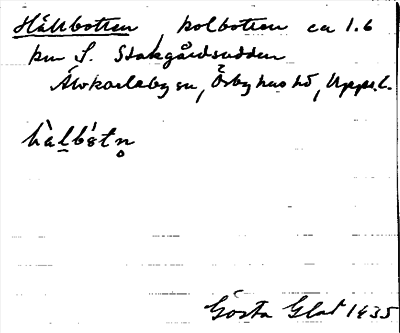 Hållbotten, kolbotten ca 1.6
km S. Stakgårdsudden
Älvkarleby sn, Örbyhus hd, Upps. l.
hàlbótn̥
Gösta Glat 1935